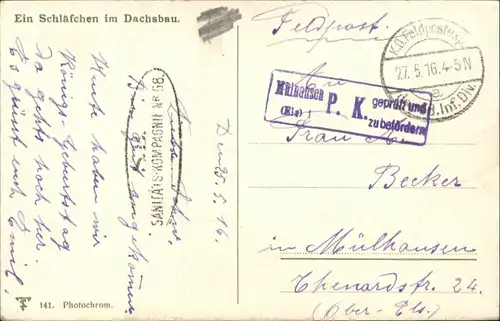 Ein Schläfchen im Dachsbau.
Den 25.5.16.
Bin gut angekommen.
Heute haben wir
Königs-Geburtstag
Da gehts hoch her.
Es grüsst euch Emil.
SANITÄTS-KOMPAGNIE Nr 68.
141. Photochrom.
Feldpost.
K.D. Feldpostexp.
27.5.16.4-5N
a.
Inf. Div.
Mülhausen
(Els)
P. K.
geprüft und
zu befördern
An
Frau
Becker
in Mülhausen
Thenardstr. 24.
(Ober-Els.)